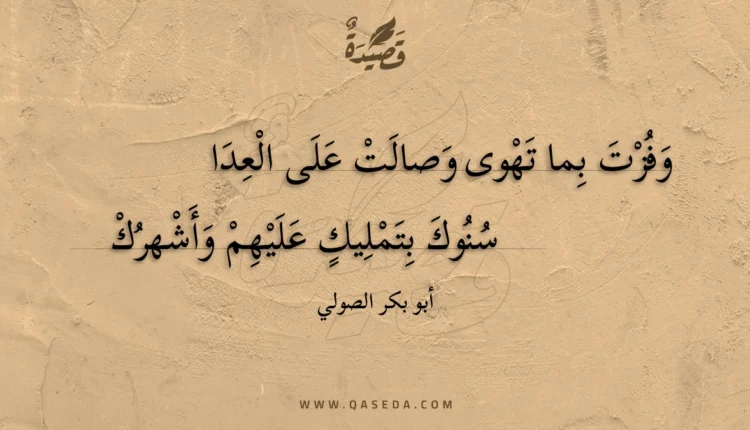 قَصِيدَةٌ
وَفُزْتَ بِما تَهْوى وَصالَتْ عَلَى الْعِدَا
سُنُوكَ بِتَمْلِيكٍ عَلَيْهِمْ وَأَشْهرُكْ
أبو بكر الصولي
WWW.QASEDA.COM